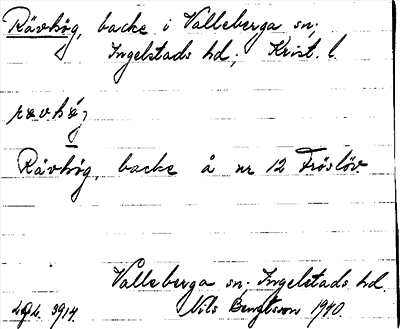 Rävhög, backe i Valleberga sn;
Ingelstads hd; Krist. l.
Rävhög, backe å nr 12 Fröslöv
Valleberga sn, Ingelstads hd.
3914. Nils Bengtsson 1940.